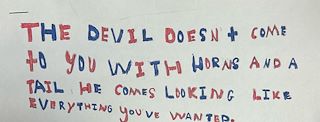 THE DEVIL DOESN't COME
tO YOU WITH HORNS AND A
TAIL HE COMES LOOKING LIKE
EVERYTHING YOU'VE WANTED.